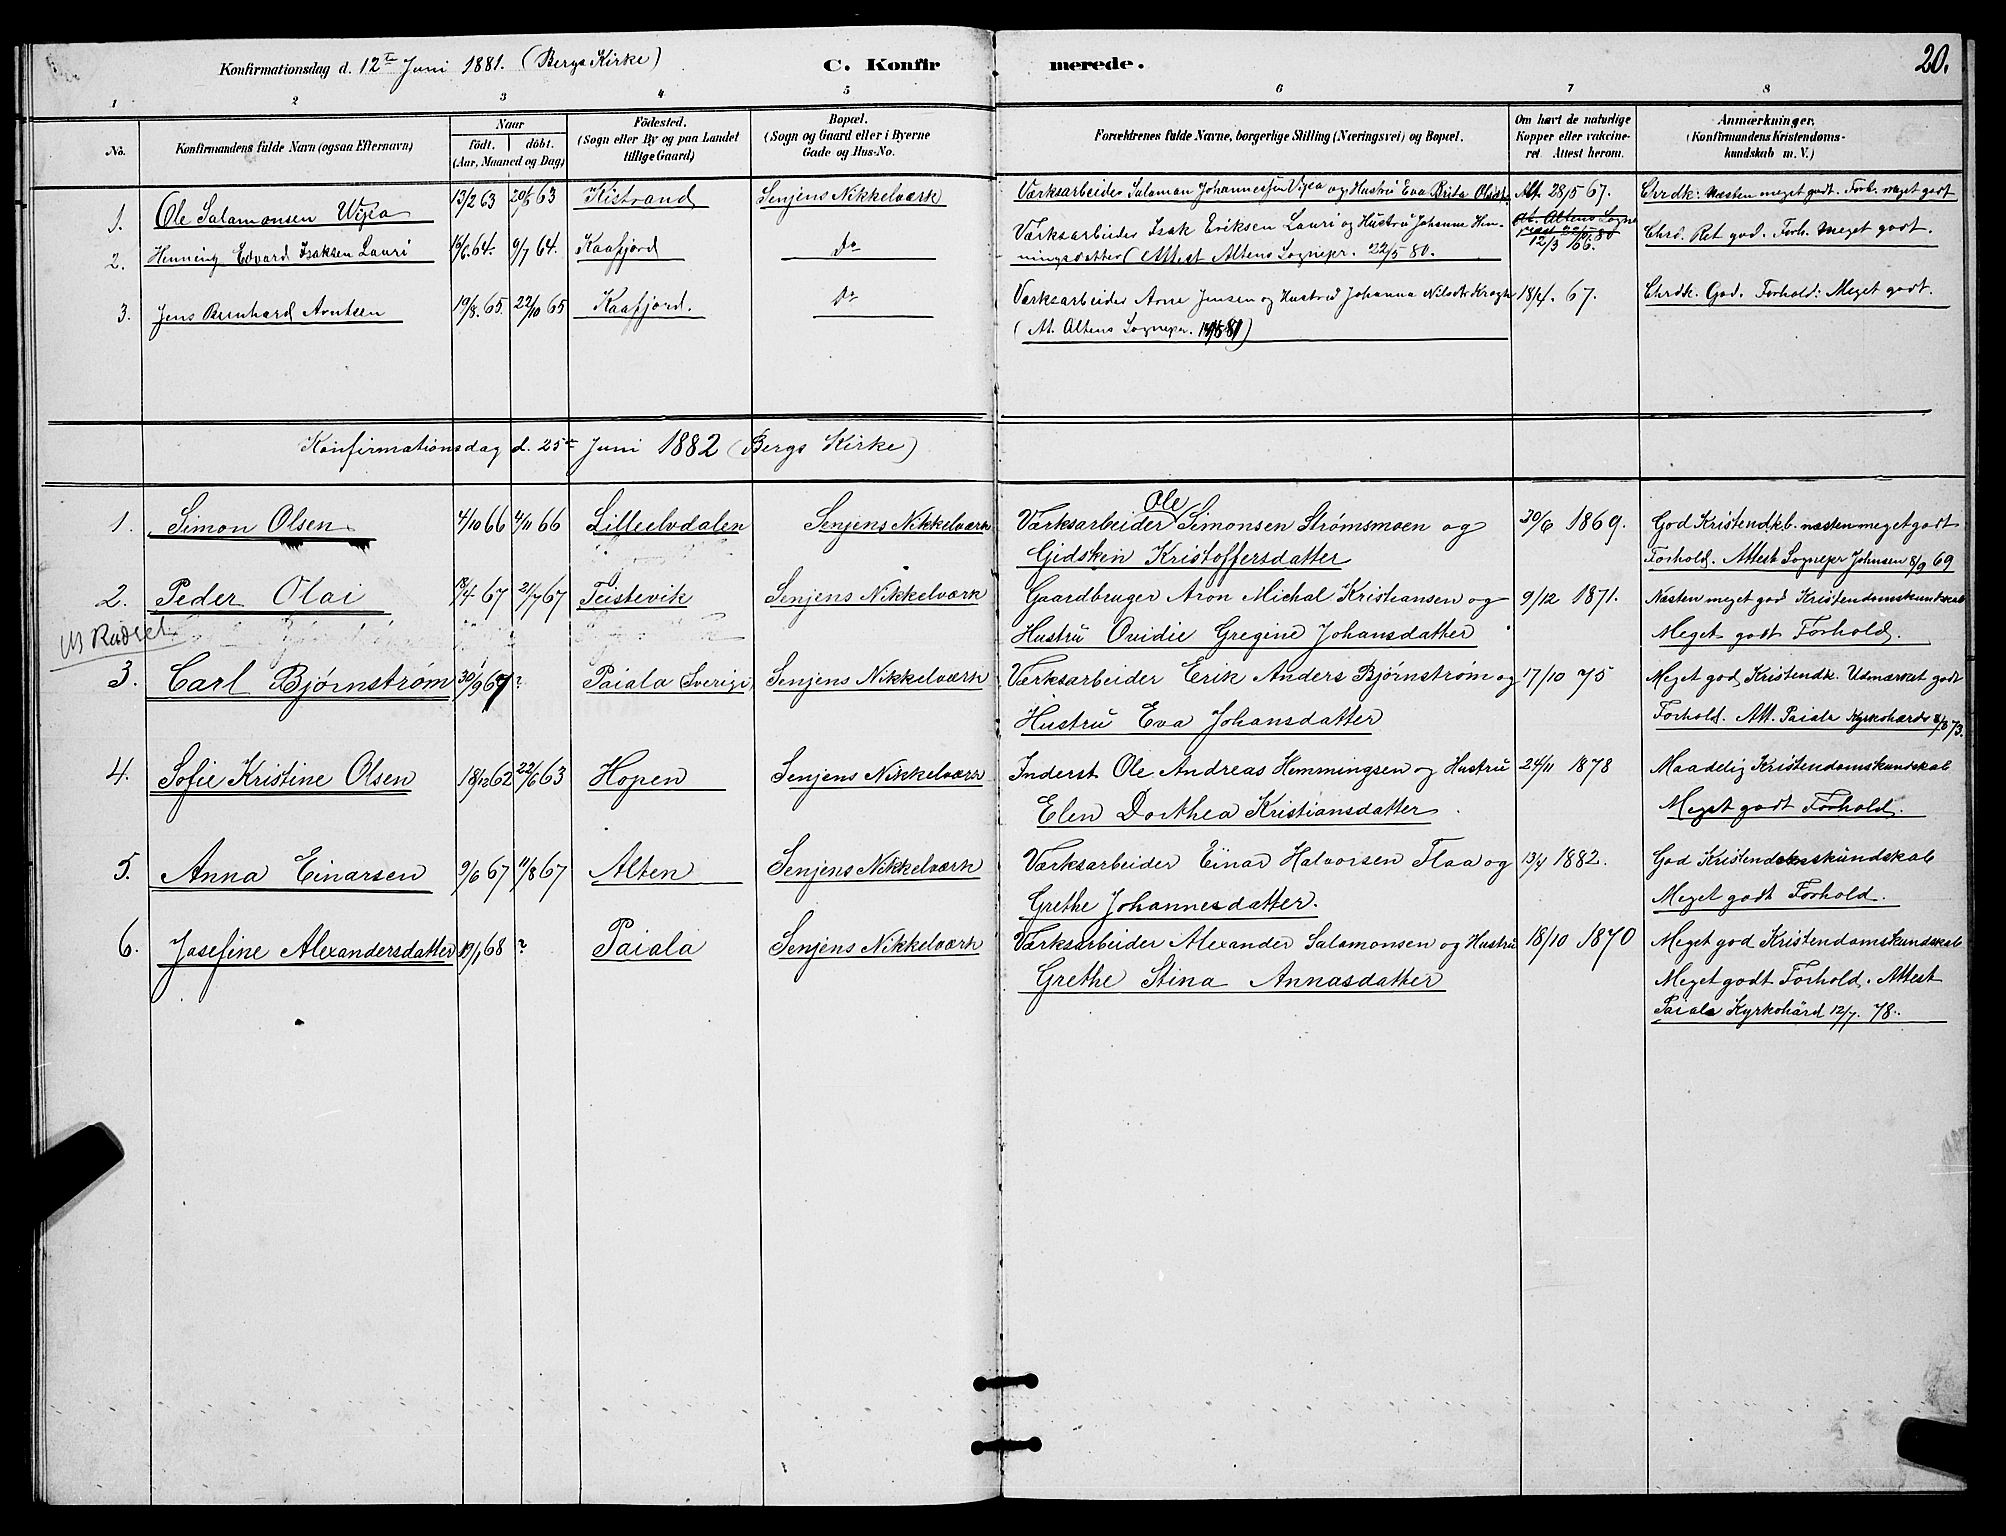 20.
Konfirmationsdag d. 12te Juni 1881. (Bergs Kirke)
C. Konfirmerede.
1 2 3 4 5 6 7 8
No.
Konfirmandens fulde Navn (ogsaa Efternavn)
Naar
födt. döbt.
(Aar, Maaned og Dag)
Födested.
(Sogn eller By og paa Landet
tillige Gaard)
Bopæl.
(Sogn og Gaard eller i Byerne
Gade og Hus-No.
Forældrenes fulde Navne, borgerlige Stilling (Næringsvei) og Bopæl.
Om havt de naturlige
Kopper eller vakcine-
ret. Attest herom.
Anmærkninger,
(Konfirmandens Kristendoms-
kundskab m. V.)
1. Ole Salamonsen 13/2 63 63 Kistrand Senjens Nikkelværk Værksarbeider Salamon Johannessen og Hustru Eva Brita Att. 28/5 67. Chrdk: Næsten meget godt. Forh. meget godt
2. Henning Edvard Isaksen Lauri 64. 9/7 64. Kaafjord do Værksarbeider Isak Eriksen Lauri og Hustru Johanne Hen-
ningsdatter (Attest Altens Sognepr. 22/5 80. 12/3 66. Chrd. Ret god. Forh. Meget godt.
3. Jens Bernhard Arntsen 19/8. 65. 22/10 65 Kaafjord. do Værksarbeider Arne Jensen og Hustru Johanna Nilsdtr Krogh 18/4. 67. Chrdk. God. Forhold: Meget godt.
(At. Altens Sognepr. 81)
Konfirmationsdag d. 25te Juni 1882 (Bergs Kirke)
1. Simon Olsen 4/10 66 4/11 66 Lilleelvdalen Senjens Nikkelværk Værksarbeider Ole Simonsen Strømsmoen og 30/6 1869. God Kristendkb. næsten meget godt
Gjidsken Kristoffersdatter Forhold. Attest Sognepr Johnsen 8/9 69
2. Peder Olai 18/4 67 21/7 67 Teistevik Senjens Nikkelværk Gaardbruger Aron Michal Kristiansen og 9/12 1871. Næsten meget god Kristendomskundskab
Hustru Ovidie Gregine Johansdatter Meget godt Forhold.
3. Carl Bjørnström 30/9 67 ? Paiala (Sverige) Senjens Nikkelværk Værksarbeider Erik Anders Bjørnstrøm og 17/10 75 Meget god Kristendk. Udmærket godt
Hustru Eva Johansdatter Forhold. Att. Paiala
4. Sofie Kristine Olsen 18/12 62 22/6 63 Hopen Senjens Nikkelværk Inderst Ole Andreas Hemmingsen og Hustru 24/11 1878 Maadelig Kristendomskundskab
Elen Dorthea Kristiansdatter Meget godt Forhold.
5. Anna Einarsen 9/6 67 11/8 67 Alten Senjens Nikkelværk Værksarbeider Einar Halvorsen Flaa og 13/4 1882. God
Grethe Johannesdatter. Meget godt Forhold.
6. Josefine Alexandersdatter 19/1 68 ? Paiala Senjens Nikkelværk Værksarbeider Alexander Salamonsen og Hustru 18/10 1870 Meget god Kristendomskundskab
Grethe Stina Annasdatter Meget godt Forhold. Attest
Paiala Kyrkohärd 12/7. 78.